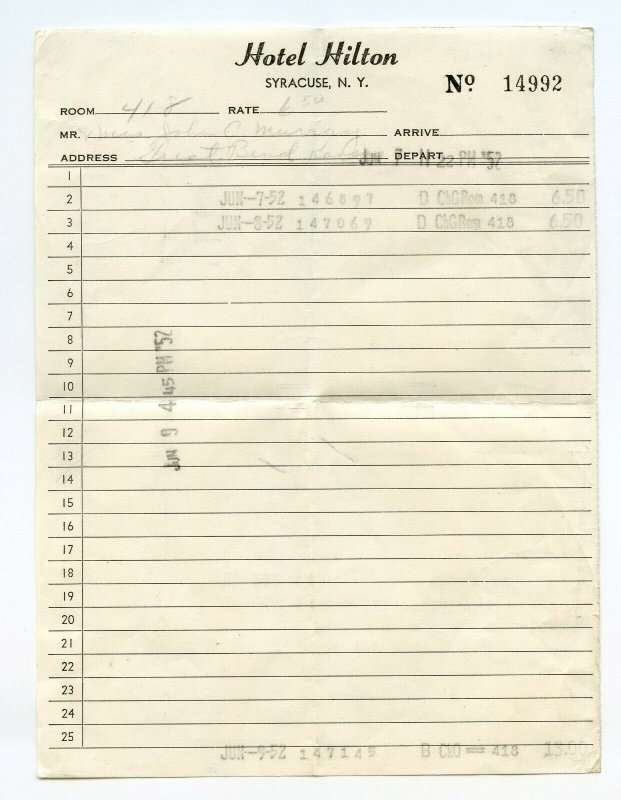 Hotel Hilton
SYRACUSE, N. Y.
Nº 14992
ROOM 418 RATE 6 50
MR. John C. Murray ARRIVE
ADDRESS Great Bend DEPART
JUN 7 11 22 PM '52
1
2 JUN--7-52 146897 D ChGRom 418 6.50
3 JUN--8-52 147069 D ChGRom 418 6.50
4
5
6
7
8
9
10
11
12
13
14
15
16
17
18
19
20
21
22
23
24
25
JUN 9 4 45 PM '52
JUN--9-52 147145 B ChO 418 13.00